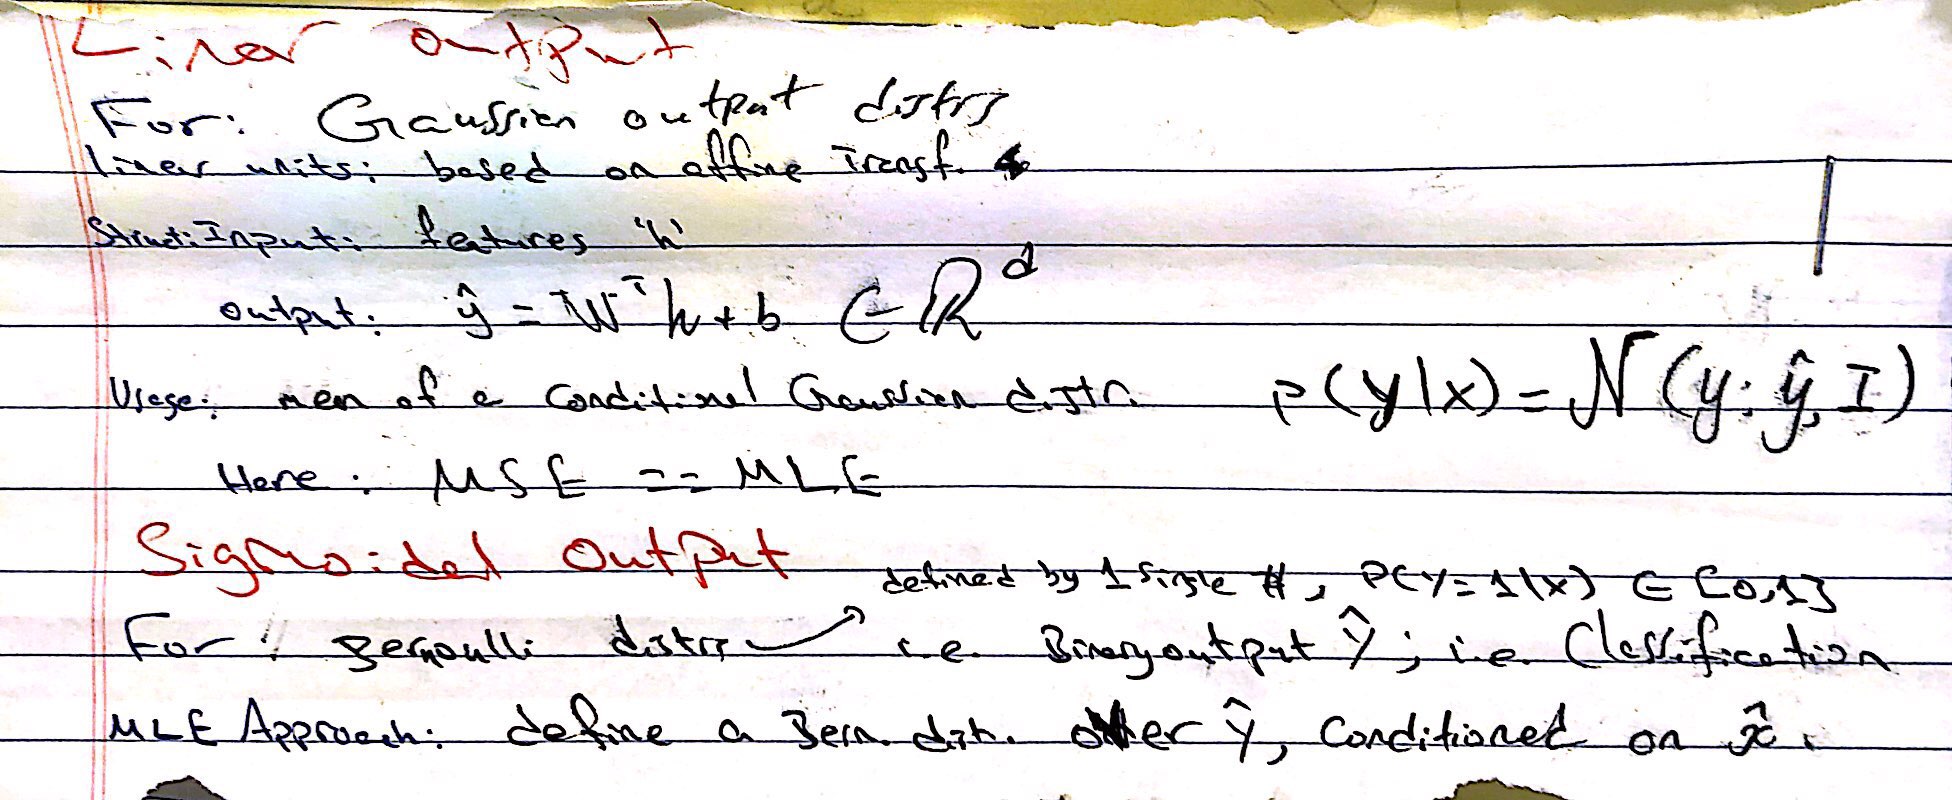 Linear output
For: Gaussian output distrs
linear units: based on affine Transf.
Struct: Input: features 'h'
output: ŷ = Wᵀh + b ∈ ℝᵈ
Usage: mean of a Conditional Gaussian distr. p(y|x) = N(y; ŷ, I)
Here: MSE == MLE
Sigmoidal Output
defined by 1 single #, P(y=1|x) ∈ [0,1]
For: Bernoulli distrs i.e. Binary output Ŷ; i.e. Classification
MLE Approach: define a Bern. distr. over Ŷ, Conditioned on x̂.